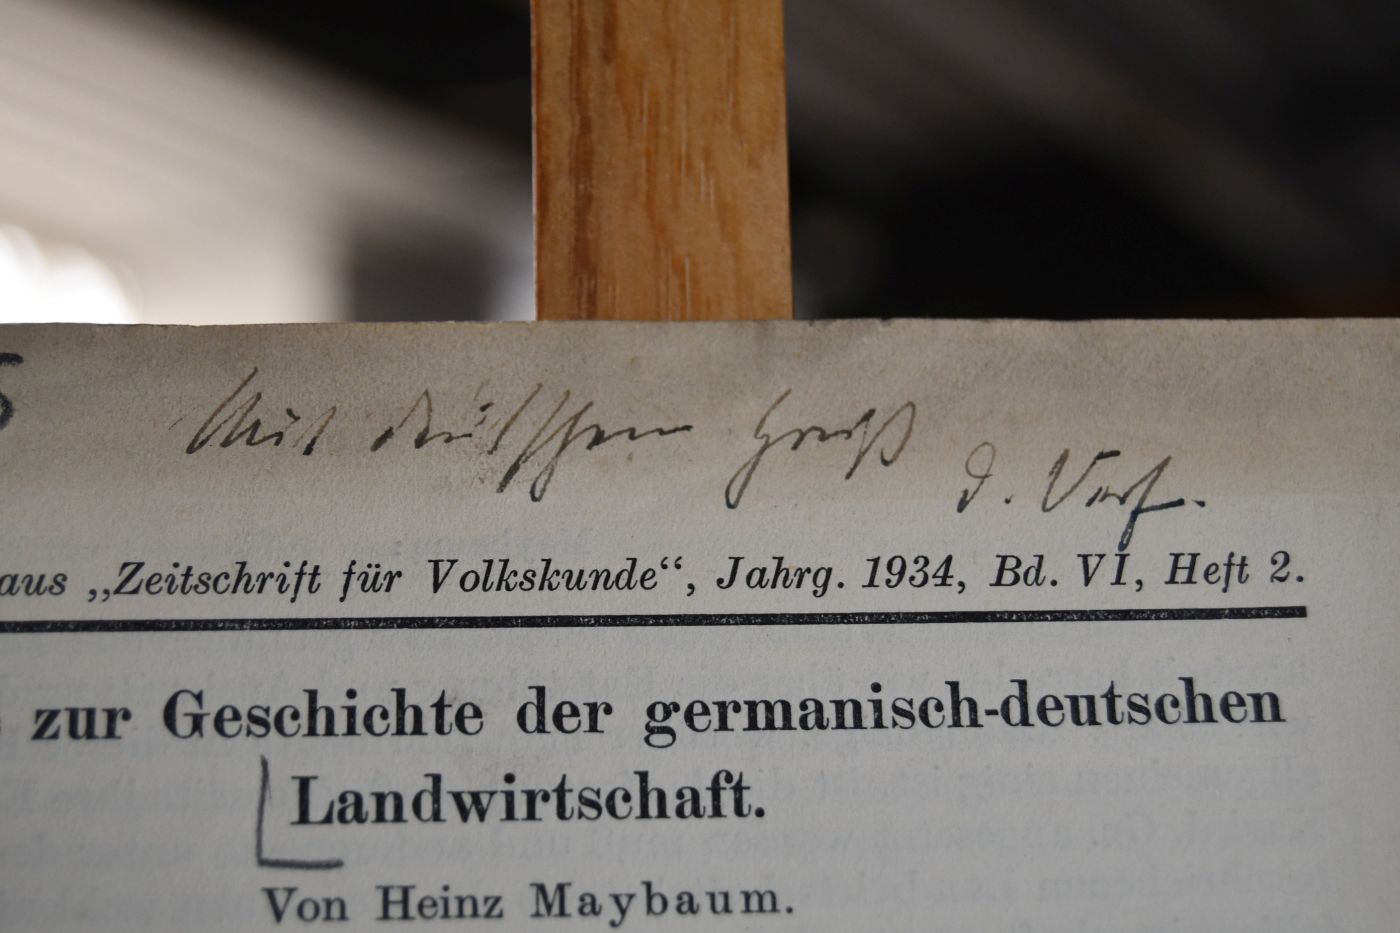 5
Mit deutschem Gruß
d. Verf.
aus „Zeitschrift für Volkskunde“, Jahrg. 1934, Bd. VI, Heft 2.
zur Geschichte der germanisch-deutschen
Landwirtschaft.
Von Heinz Maybaum.